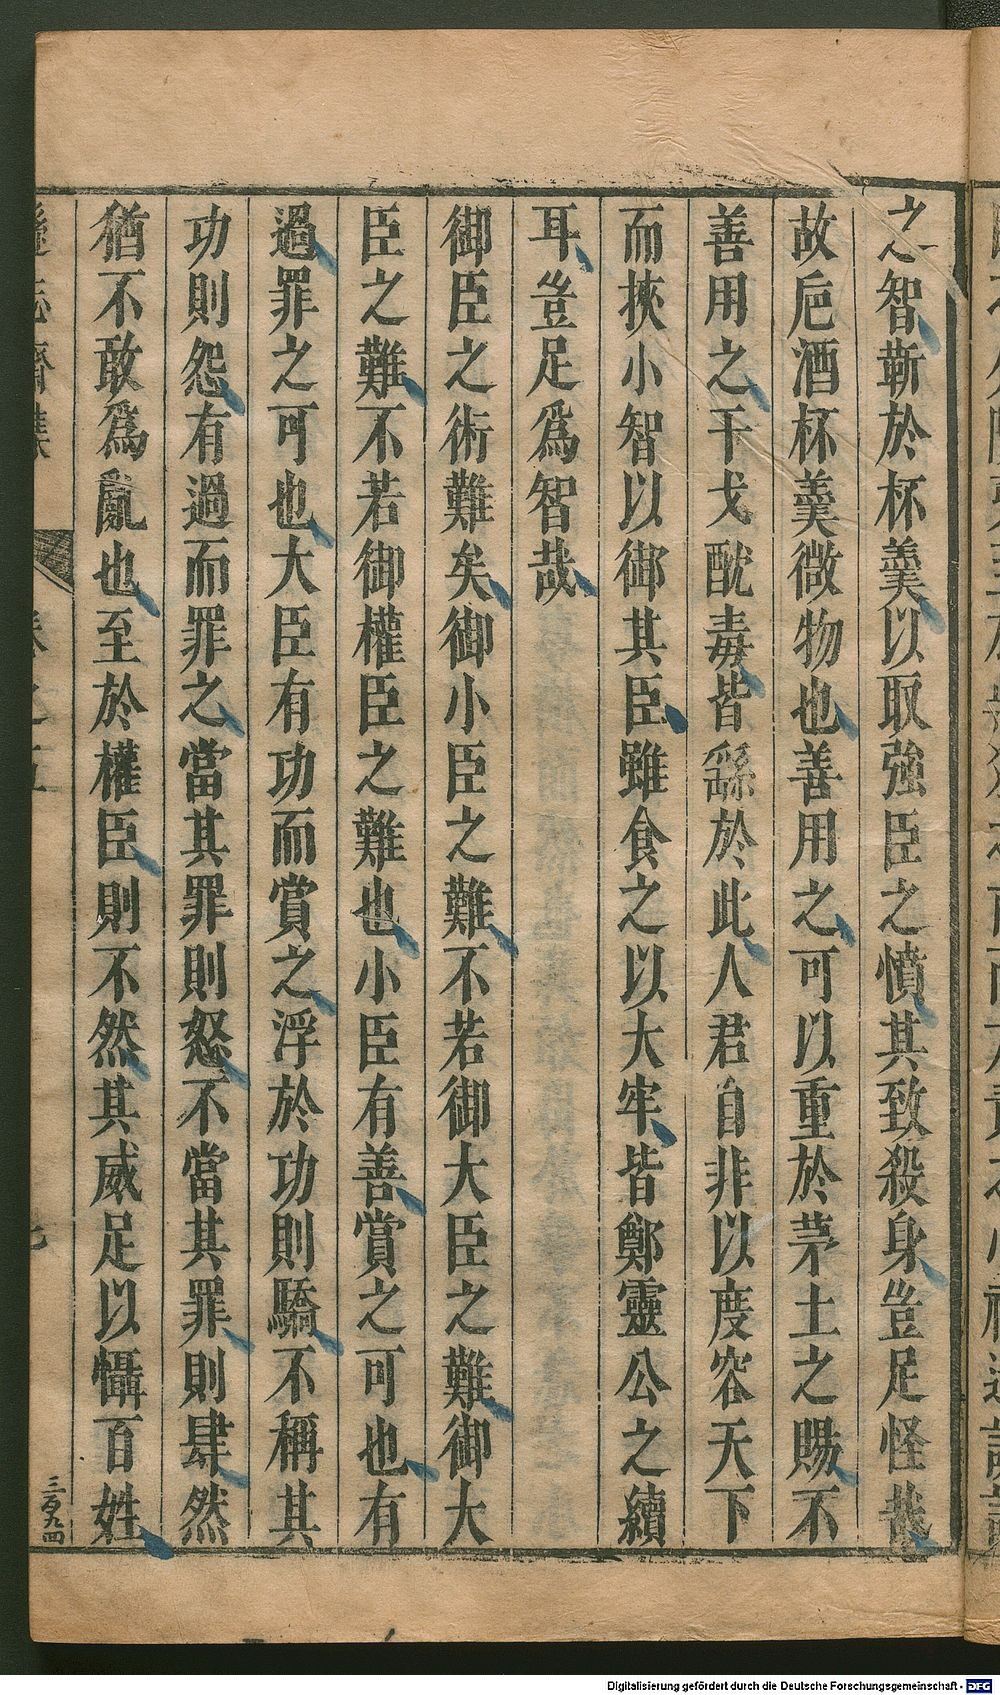 之智蘄於杯羹以取強臣之憤其致殺身豈足怪哉
故巵酒杯羹微物也善用之可以重於茅土之賜不
善用之干戈酖毒皆繇於此人君自非以度容天下
而挾小智以御其臣雖食之以大牢皆鄭靈公之續
耳豈足爲智哉
御臣之術難矣御小臣之難不若御大臣之難御大
臣之難不若御權臣之難也小臣有善賞之可也有
過罪之可也大臣有功而賞之浮於功則驕不稱其
功則怨有過而罪之當其罪則怒不當其罪則肆然
猶不敢爲亂也至於權臣則不然其威足以懾百姓
遜志齋集 卷之五 七
三百九四
Digitalisierung gefördert durch die Deutsche Forschungsgemeinschaft - DFG